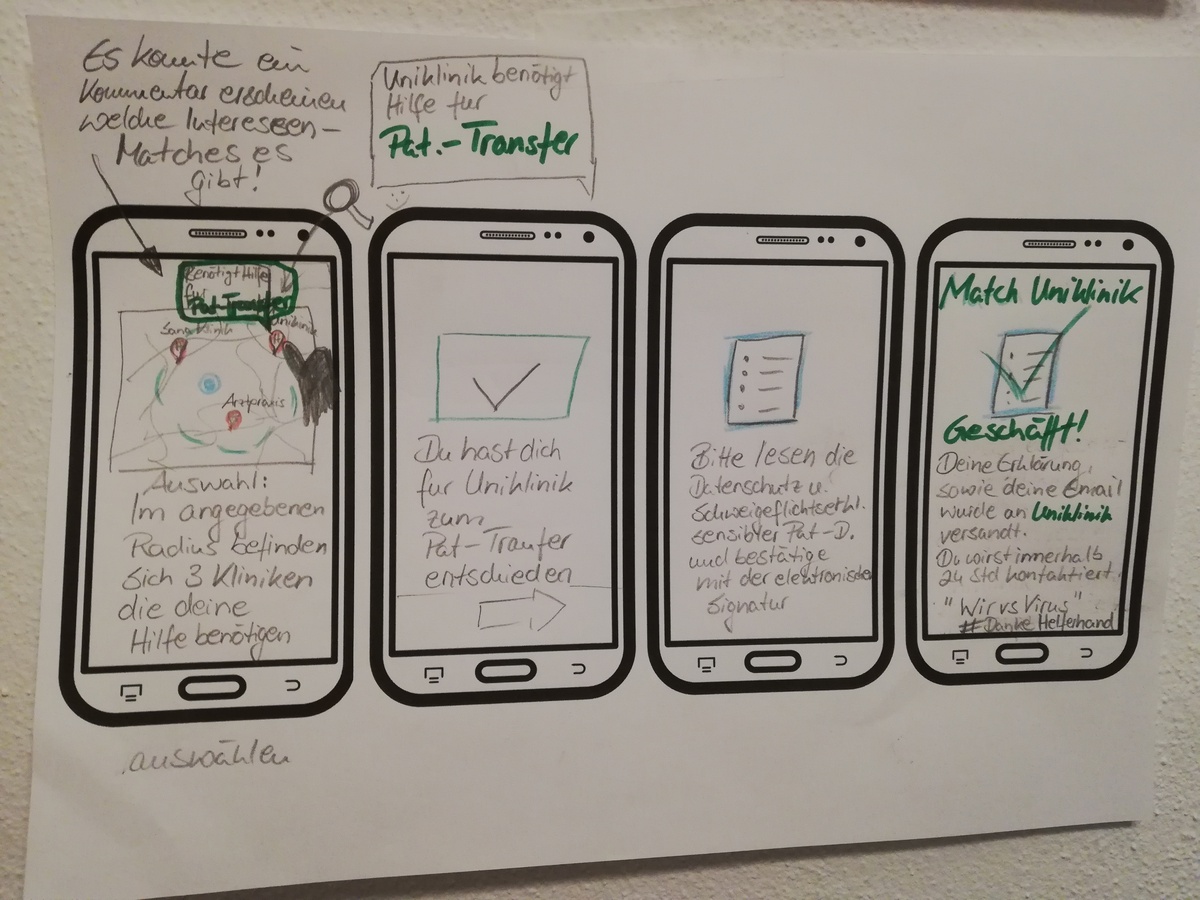 Es könnte ein
Kommentar erscheinen
welche Interessen-
Matches es
gibt!
Uniklinik benötigt
Hilfe für
Pat.-Transfer
Benötigt Hilfe
für
Pat-Transfer
Sana Klinik
Uniklinik
Arztpraxis
Auswahl:
Im angegebenen
Radius befinden
sich 3 Kliniken
die deine
Hilfe benötigen
auswählen
Du hast dich
für Uniklinik
zum
Pat-Tranfer
entschieden
Bitte lesen die
Datenschutz u.
Schweigeflichtserkl.
sensibler Pat-D.
und bestätige
mit der elektronische
Signatur
Match Uniklinik
Geschafft!
Deine Erklärung,
sowie deine Email
wurde an Uniklinik
versandt.
Du wirst innerhalb
24 Std kontaktiert.
"Wir vs Virus"
#Danke Helferhand